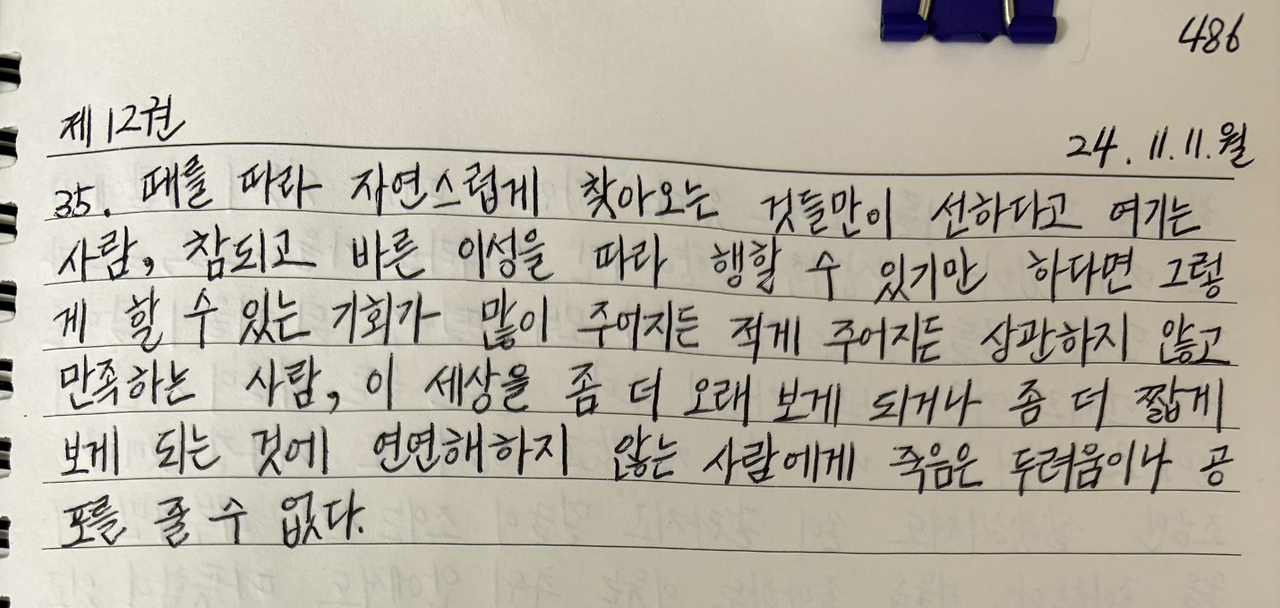 486
제12권
24. 11. 11. 월
35. 때를 따라 자연스럽게 찾아오는 것들만이 선하다고 여기는
사람, 참되고 바른 이성을 따라 행할 수 있기만 하다면 그렇
게 할 수 있는 기회가 많이 주어지든 적게 주어지든 상관하지 않고
만족하는 사람, 이 세상을 좀 더 오래 보게 되거나 좀 더 짧게
보게 되는 것에 연연해하지 않는 사람에게 죽음은 두려움이나 공
포를 줄 수 없다.